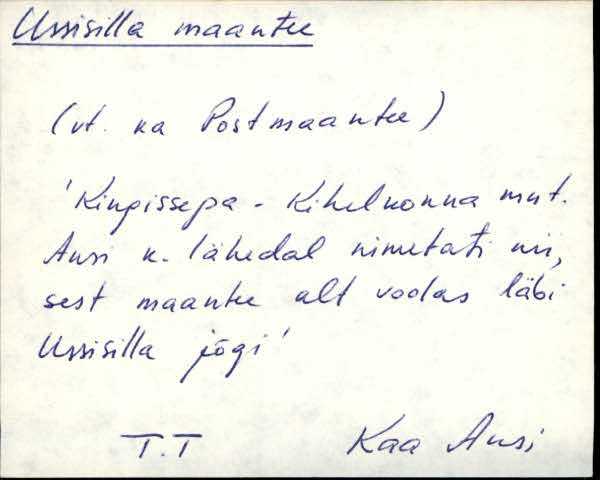 Ussisilla maantee
(vt. ka Postmaantee)
'Kingissepa - Kihelkonna mnt.
Ansi k. lähedal nimetati nii,
sest maantee alt voolas läbi
Ussisilla jõgi'
T.T Kaa Ansi